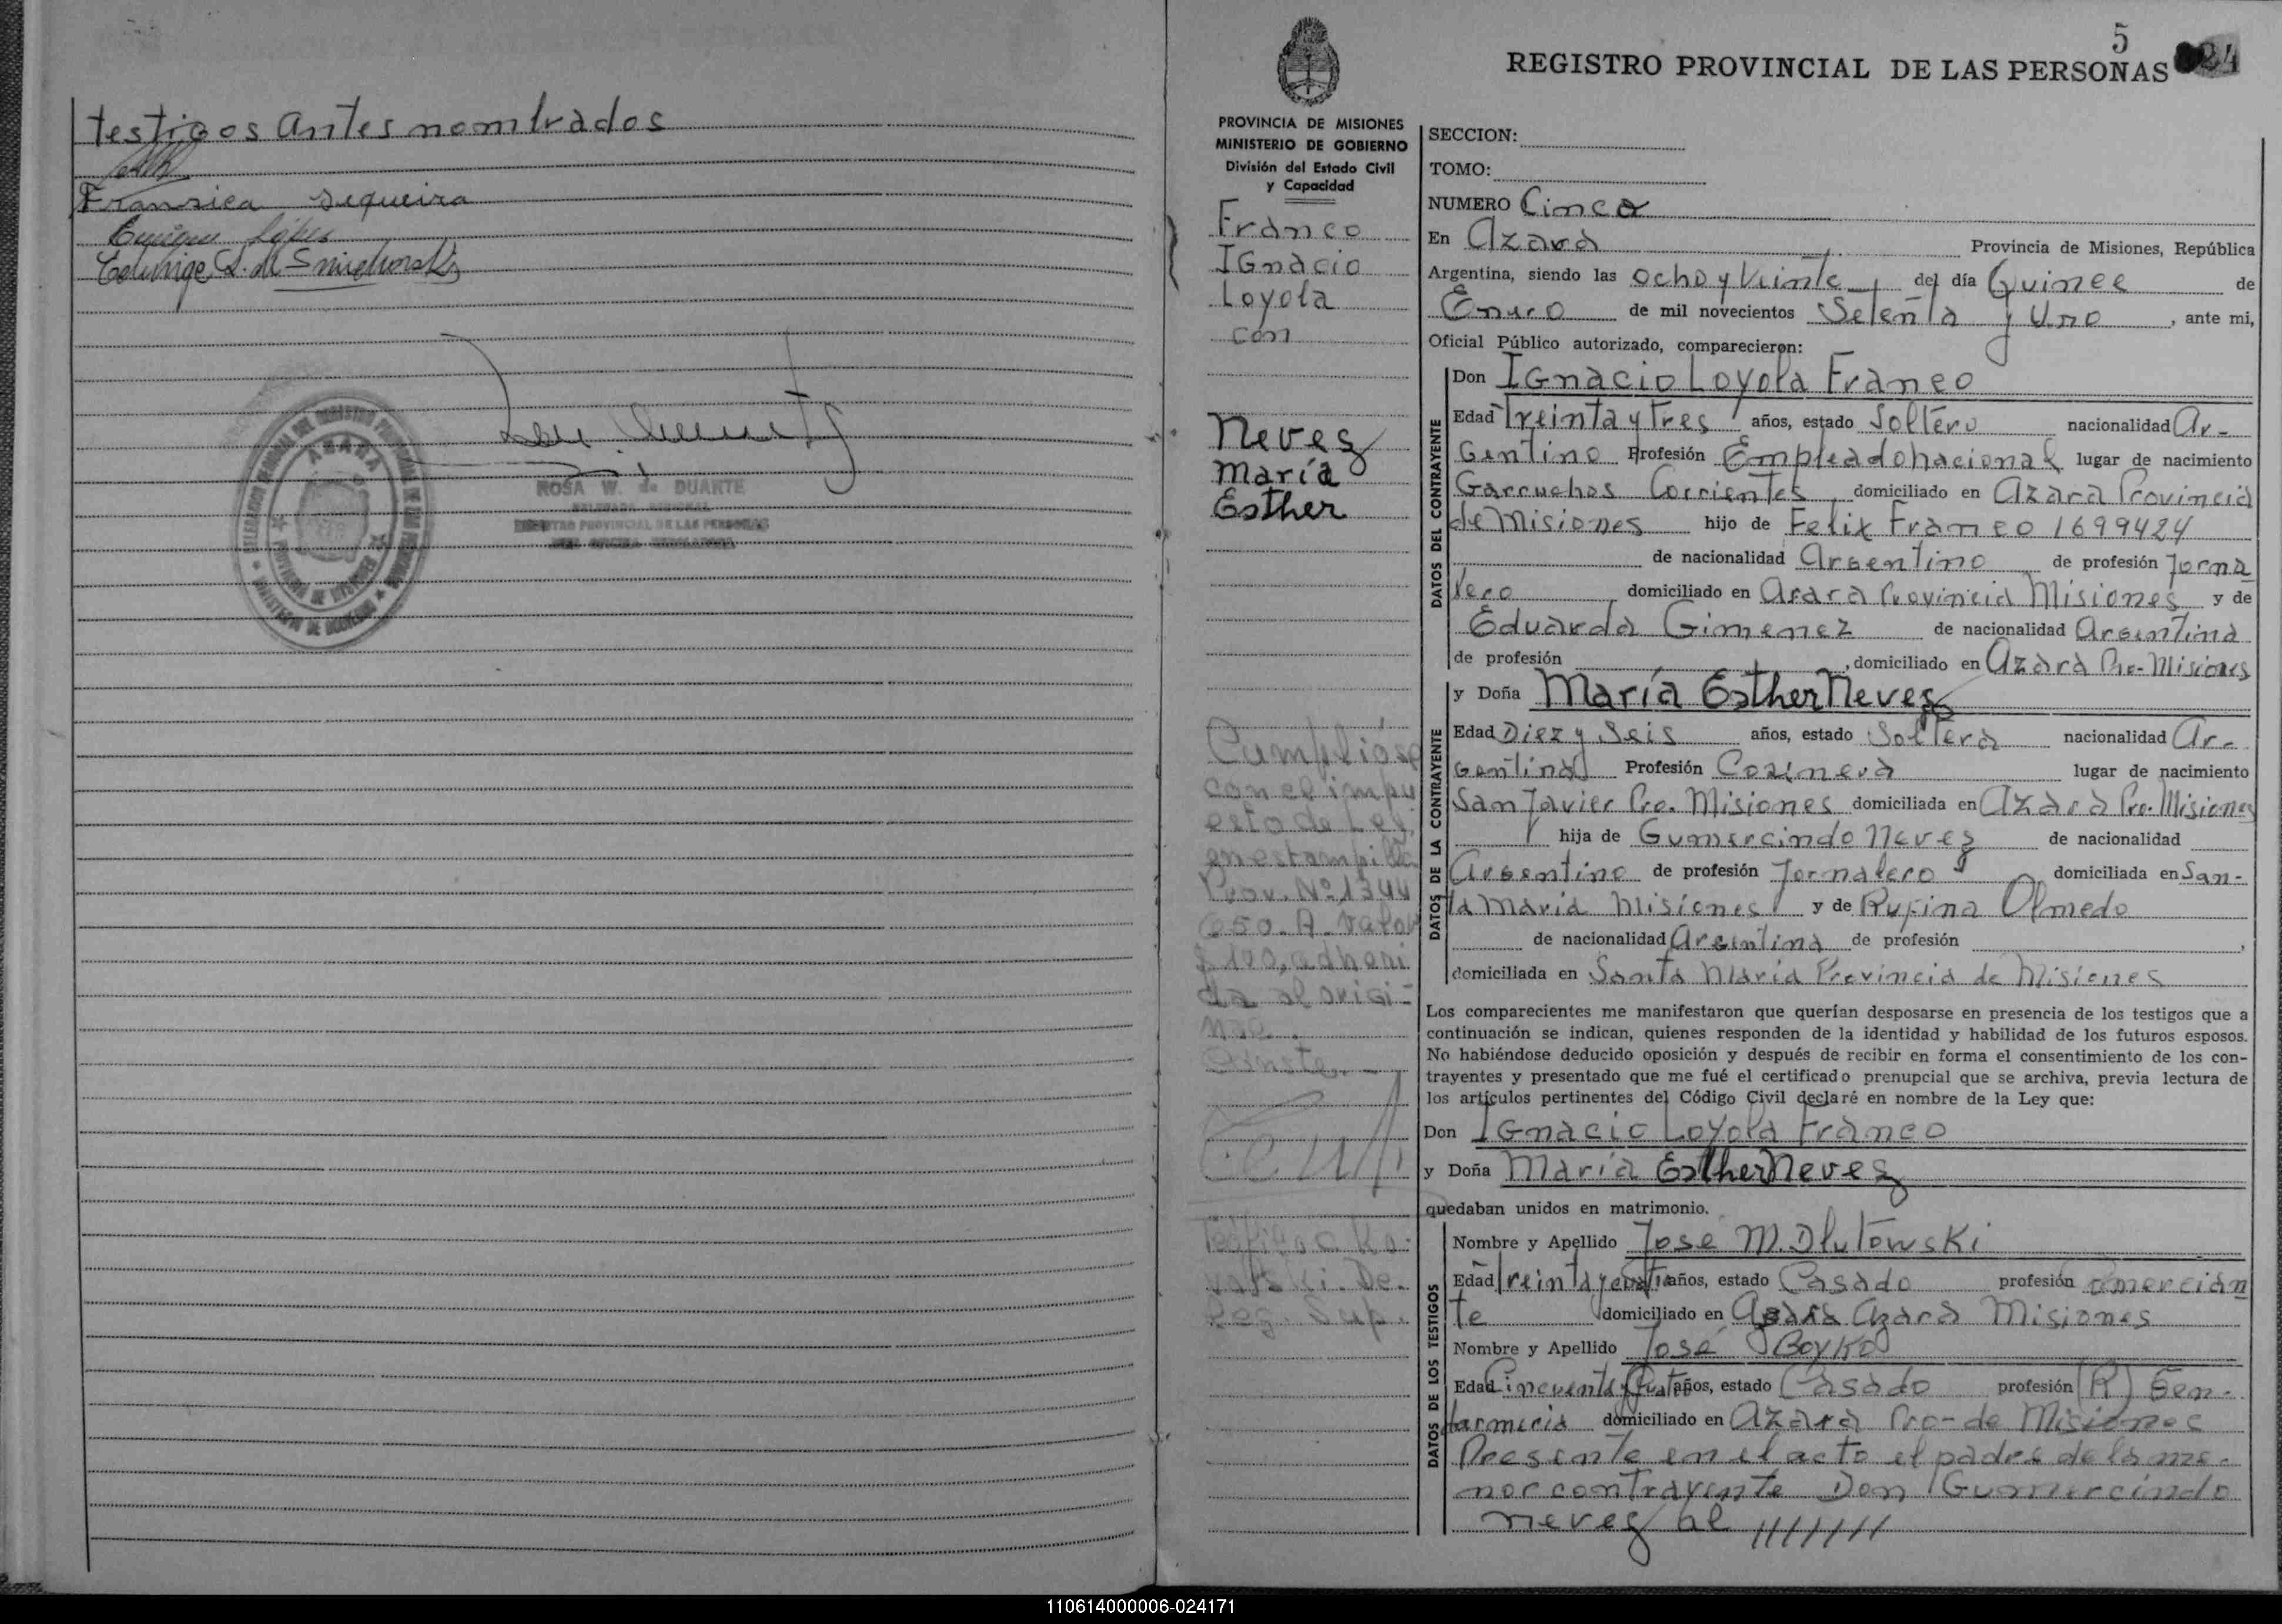 testigos antes nombrados
Fransica Sequeira
Lópes
ROSA W. de DUARTE
REGISTRO PROVINCIAL DE LAS PERSONAS
AZARA
PROVINCIA DE MISIONES
MINISTERIO DE GOBIERNO
5
REGISTRO PROVINCIAL DE LAS PERSONAS
PROVINCIA DE MISIONES
MINISTERIO DE GOBIERNO
División del Estado Civil
y Capacidad
Franco
IGnacio
Loyola
con
Neves
María
Esther
Cumplióse
con el impu
esto de Ley
en estampilla
Prov. Nº 1344
650. A. Valor
$ 100, adheri
da al origi-
nal.
Conste.-
SECCION:
TOMO:
NUMERO Cinco
En Azara Provincia de Misiones, República
Argentina, siendo las ocho y Veinte del día Quince de
Enero de mil novecientos Setenta y Uno, ante mi,
Oficial Público autorizado, comparecieron:
DATOS DEL CONTRAYENTE
Don IGnacio Loyola Franco
Edad Treinta y Tres años, estado Soltero nacionalidad Ar-
Gentino Profesión Empleado nacional lugar de nacimiento
Garruchos Corrientes, domiciliado en Azara Provincia
de Misiones hijo de Felix Franco 1699424
de nacionalidad Argentino de profesión Jorna
lero domiciliado en Azara Provincia Misiones y de
Eduarda Gimenez de nacionalidad Argentina
de profesión , domiciliado en Azara Pro-Misiones
DATOS DE LA CONTRAYENTE
y Doña María Esther Neves
Edad Diez y Seis años, estado Soltera nacionalidad Ar-
Gentina Profesión Cosinera lugar de nacimiento
San Javier Pro. Misiones domiciliada en Azara Pro. Misiones
hija de Gumercindo Neves de nacionalidad
Argentino de profesión Jornalero domiciliada en San-
ta María Misiones y de Rufina Olmedo
de nacionalidad Argentina de profesión ,
domiciliada en Santa María Provincia de Misiones
Los comparecientes me manifestaron que querían desposarse en presencia de los testigos que a
continuación se indican, quienes responden de la identidad y habilidad de los futuros esposos.
No habiéndose deducido oposición y después de recibir en forma el consentimiento de los con-
trayentes y presentado que me fué el certificado prenupcial que se archiva, previa lectura de
los artículos pertinentes del Código Civil declaré en nombre de la Ley que:
Don IGnacio Loyola Franco
y Doña María Esther Neves
quedaban unidos en matrimonio.
DATOS DE LOS TESTIGOS
Nombre y Apellido José M. Dlutowski
Edad Treinta y cuatro años, estado Casado profesión Comercian
te domiciliado en Azara Misiones
Nombre y Apellido José Boyko
Edad Cincuenta y Cuatro años, estado Casado profesión (R) Gen-
darmería domiciliado en Azara Pro- de Misiones
Presente en el acto el padre de la me-
nor contrayente Don Gumercindo
neves al ///////
110614000006-024171